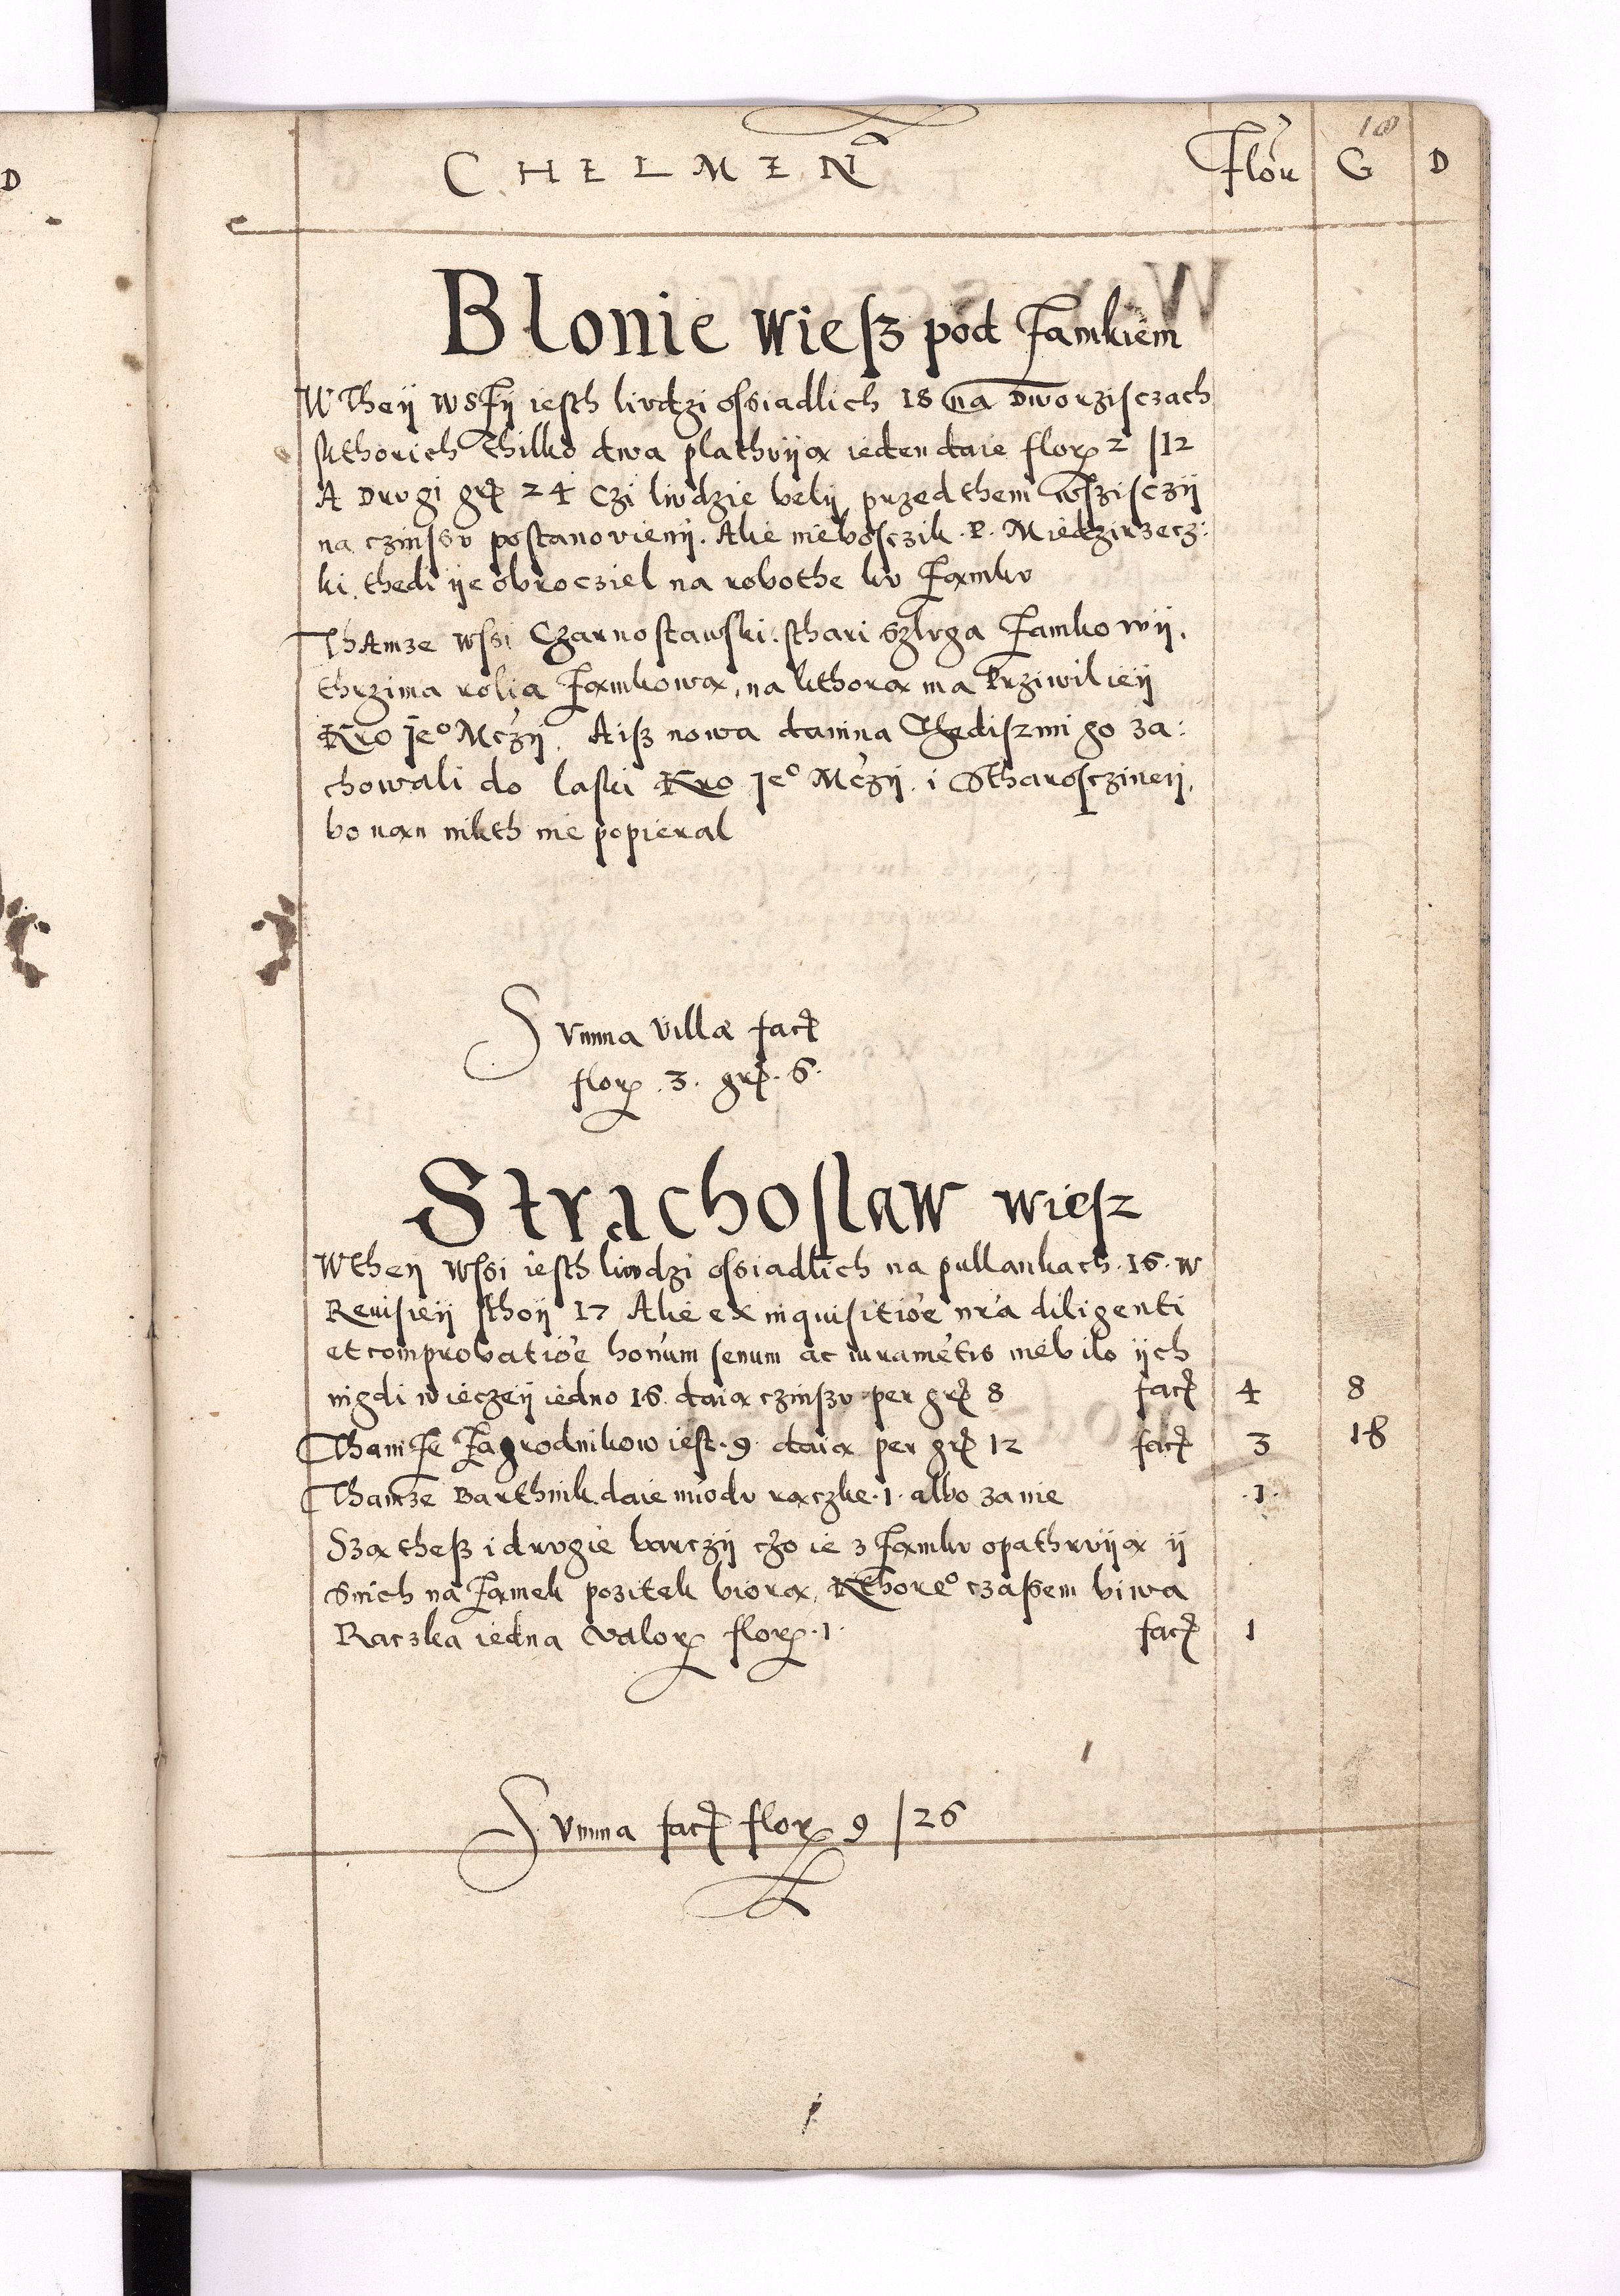 18
CHELMEN̄ Flōu G D
D
Blonie wiesz pod Zamkiem
WTheÿ wsZÿ iesth liudzi ossiadlich 18 na Dworzisczach
skthorich thilko dwa plathvÿa ieden daie flor 2 / 12
A Drvgi gr 24 Czi liudzie belÿ przed them wszisczÿ
na czinssv postanovienÿ. Ale niebosczik. P. Miedzirzecz:
ki. thedi ÿe obrocziel na robothe kv Zamkv
ThAmze wssi Czarnostawski. sthari Szlvga Zamkowÿ.
thrzima rolia Zamkowa, na kthora ma Prziwilieÿ
Kro Je° Mczÿ. Aisz nowa danina Thediszmi go za:
chowali do laski Kro Je° Mczÿ. i Stharosczineÿ,
bo nan nikth nie popieral
Svmma Villæ facit
flor. 3. gr. 6.
Strachoslaw wiesz
Wtheÿ Wssi iesth liudzi ossiadlich na pullankach. 16. w
Reuisieÿ sthoÿ 17 Ale ex inquisitiōe nr̄a diligenti
et comprobatiōe honūm senum ac iuramētis niebilo ÿch
nigdi wieczeÿ iedno 16. daia czinszv per gr 8 facit 4 8
ThamZe Zagrodnikow iest. 9. daia per gr 12 facit 3 18
Thamze Barthnik. daie miodv raczke. 1. albo za nie .1.
Sza thesz i drvgie barczÿ czo ie z Zamkv opathrvÿa ÿ
Snich na Zamek pozitek biora, Kthore° czassem biwa
Raczka iedna Valor flor. 1. facit 1
Svmma facit flor 9 / 26